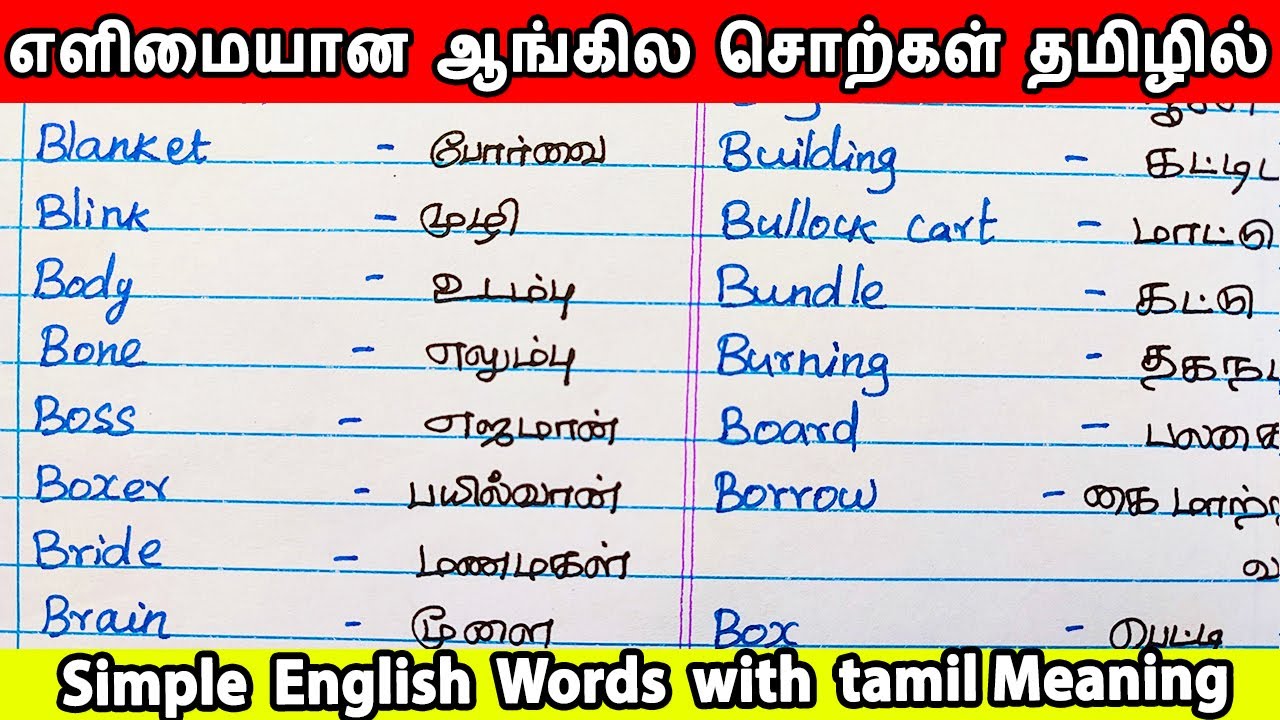 எளிமையான ஆங்கில சொற்கள் தமிழில்
Blanket - போர்வை
Blink - முழி
Body - உடம்பு
Bone - எலும்பு
Boss - எஜமான்
Boxer - பயில்வான்
Bride - மணமகள்
Brain - மூளை
Building - கட்டிட
Bullock cart - மாட்டு
Bundle - கட்டு
Burning -
Board - பலகை
Borrow - கை மாற்ற
Box - பெட்டி
Simple English Words with tamil Meaning